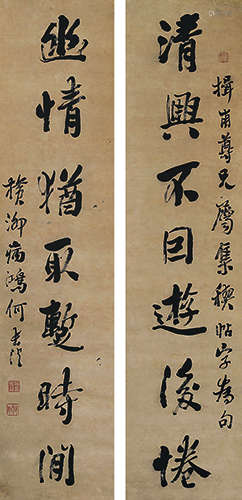 揖甫尊兄屬集禊帖字為句
清興不因遊後倦
幽情猶取暫時閒
橫泖病鴻何長治